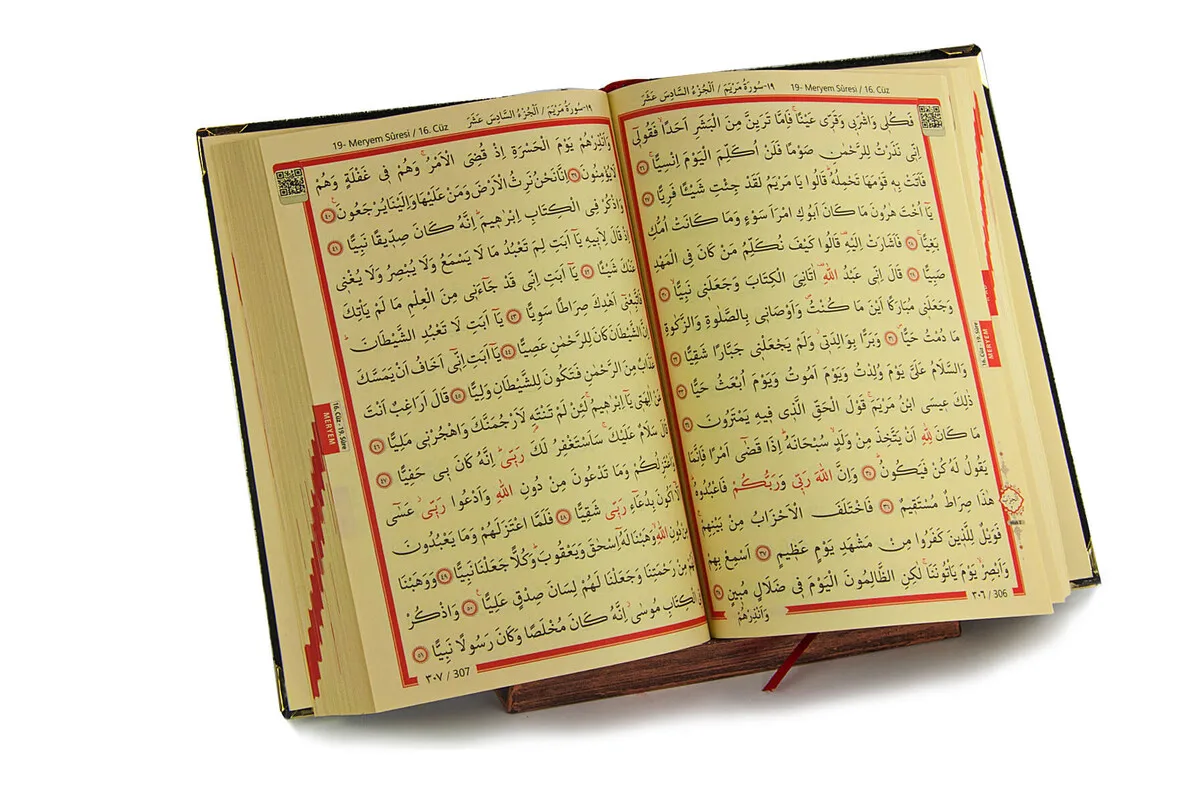 ١٩-سُورَةُ مَرْيَمَ / اَلْجُزْءُ السَّادِسَ عَشَرَ 19- Meryem Sûresi / 16. Cüz
فَكُلِي وَاشْرَبِي وَقَرِّي عَيْنًاۚ فَاِمَّا تَرَيِنَّ مِنَ الْبَشَرِ اَحَدًاۙ فَقُولِٓي
اِنِّي نَذَرْتُ لِلرَّحْمٰنِ صَوْمًا فَلَنْ اُكَلِّمَ الْيَوْمَ اِنْسِيًّاۚ ٢٦
فَاَتَتْ بِهِ قَوْمَهَا تَحْمِلُهُۜ قَالُوا يَا مَرْيَمُ لَقَدْ جِئْتِ شَيْـًٔا فَرِيًّا ٢٧
يَٓا اُخْتَ هٰرُونَ مَا كَانَ اَبُوكِ امْرَاَ سَوْءٍ وَمَا كَانَتْ اُمُّكِ
بَغِيًّاۚ ٢٨ فَاَشَارَتْ اِلَيْهِۜ قَالُوا كَيْفَ نُكَلِّمُ مَنْ كَانَ فِي الْمَهْدِ
صَبِيًّا ٢٩ قَالَ اِنِّي عَبْدُ اللّٰهِۜ اٰتَانِيَ الْكِتَابَ وَجَعَلَنِي نَبِيًّاۙ ٣٠
وَجَعَلَنِي مُبَارَكًا اَيْنَ مَا كُنْتُۖ وَاَوْصَانِي بِالصَّلٰوةِ وَالزَّكٰوةِ
مَا دُمْتُ حَيًّاۖ ٣١ وَبَرًّا بِوَالِدَتِيۘ وَلَمْ يَجْعَلْنِي جَبَّارًا شَقِيًّا ٣٢
وَالسَّلَامُ عَلَيَّ يَوْمَ وُلِدْتُ وَيَوْمَ اَمُوتُ وَيَوْمَ اُبْعَثُ حَيًّا ٣٣
ذٰلِكَ عِيسَى ابْنُ مَرْيَمَۚ قَوْلَ الْحَقِّ الَّذِي فِيهِ يَمْتَرُونَ ٣٤
مَا كَانَ لِلّٰهِ اَنْ يَتَّخِذَ مِنْ وَلَدٍۙ سُبْحَانَهُۜ اِذَا قَضٰٓى اَمْرًا فَاِنَّمَا
يَقُولُ لَهُ كُنْ فَيَكُونُۜ ٣٥ وَاِنَّ اللّٰهَ رَبِّي وَرَبُّكُمْ فَاعْبُدُوهُۜ
هٰذَا صِرَاطٌ مُسْتَقِيمٌ ٣٦ فَاخْتَلَفَ الْاَحْزَابُ مِنْ بَيْنِهِمْۚ
فَوَيْلٌ لِلَّذِينَ كَفَرُوا مِنْ مَشْهَدِ يَوْمٍ عَظِيمٍ ٣٧ اَسْمِعْ بِهِمْ
وَاَبْصِرْۙ يَوْمَ يَأْتُونَنَاۚ لٰكِنِ الظَّالِمُونَ الْيَوْمَ فِي ضَلَالٍ مُبِينٍ ٣٨
وَاَنْذِرْهُمْ
٣٠٦ / 306
16. Cüz - 19. Sûre
MERYEM
١٩-سُورَةُ مَرْيَمَ / اَلْجُزْءُ السَّادِسَ عَشَرَ 19- Meryem Sûresi / 16. Cüz
وَاَنْذِرْهُمْ يَوْمَ الْحَسْرَةِ اِذْ قُضِيَ الْاَمْرُۢ وَهُمْ فِي غَفْلَةٍ وَهُمْ
لَا يُؤْمِنُونَ ٣٩ اِنَّا نَحْنُ نَرِثُ الْاَرْضَ وَمَنْ عَلَيْهَا وَاِلَيْنَا يُرْجَعُونَ۟ ٤٠
وَاذْكُرْ فِي الْكِتَابِ اِبْرٰهِيمَۜ اِنَّهُ كَانَ صِدِّيقًا نَبِيًّا ٤١
اِذْ قَالَ لِاَبِيهِ يَٓا اَبَتِ لِمَ تَعْبُدُ مَا لَا يَسْمَعُ وَلَا يُبْصِرُ وَلَا يُغْنِي
عَنْكَ شَيْـًٔا ٤٢ يَٓا اَبَتِ اِنِّي قَدْ جَٓاءَنِي مِنَ الْعِلْمِ مَا لَمْ يَأْتِكَ
فَاتَّبِعْنِٓي اَهْدِكَ صِرَاطًا سَوِيًّا ٤٣ يَٓا اَبَتِ لَا تَعْبُدِ الشَّيْطَانَۜ
الشَّيْطَانَ كَانَ لِلرَّحْمٰنِ عَصِيًّا ٤٤ يَٓا اَبَتِ اِنِّٓي اَخَافُ اَنْ يَمَسَّكَ
عَذَابٌ مِنَ الرَّحْمٰنِ فَتَكُونَ لِلشَّيْطَانِ وَلِيًّا ٤٥ قَالَ اَرَاغِبٌ اَنْتَ
عَنْ اٰلِهَتِي يَٓا اِبْرٰهِيمُۚ لَئِنْ لَمْ تَنْتَهِ لَاَرْجُمَنَّكَ وَاهْجُرْنِي مَلِيًّا ٤٦
قَالَ سَلَامٌ عَلَيْكَۚ سَاَسْتَغْفِرُ لَكَ رَبِّيۜ اِنَّهُ كَانَ بِي حَفِيًّا ٤٧
وَاَعْتَزِلُكُمْ وَمَا تَدْعُونَ مِنْ دُونِ اللّٰهِ وَاَدْعُوا رَبِّيۘ عَسٰٓى
اَكُونَ بِدُعَٓاءِ رَبِّي شَقِيًّا ٤٨ فَلَمَّا اعْتَزَلَهُمْ وَمَا يَعْبُدُونَ
مِنْ دُونِ اللّٰهِۙ وَهَبْنَا لَهُٓ اِسْحٰقَ وَيَعْقُوبَۜ وَكُلًّا جَعَلْنَا نَبِيًّا ٤٩ وَوَهَبْنَا
لَهُمْ مِنْ رَحْمَتِنَا وَجَعَلْنَا لَهُمْ لِسَانَ صِدْقٍ عَلِيًّا۟ ٥٠ وَاذْكُرْ
الْكِتَابِ مُوسٰىۘ اِنَّهُ كَانَ مُخْلَصًا وَكَانَ رَسُولًا نَبِيًّا ٥١
٣٠٧ / 307
16. Cüz - 19. Sûre
MERYEM